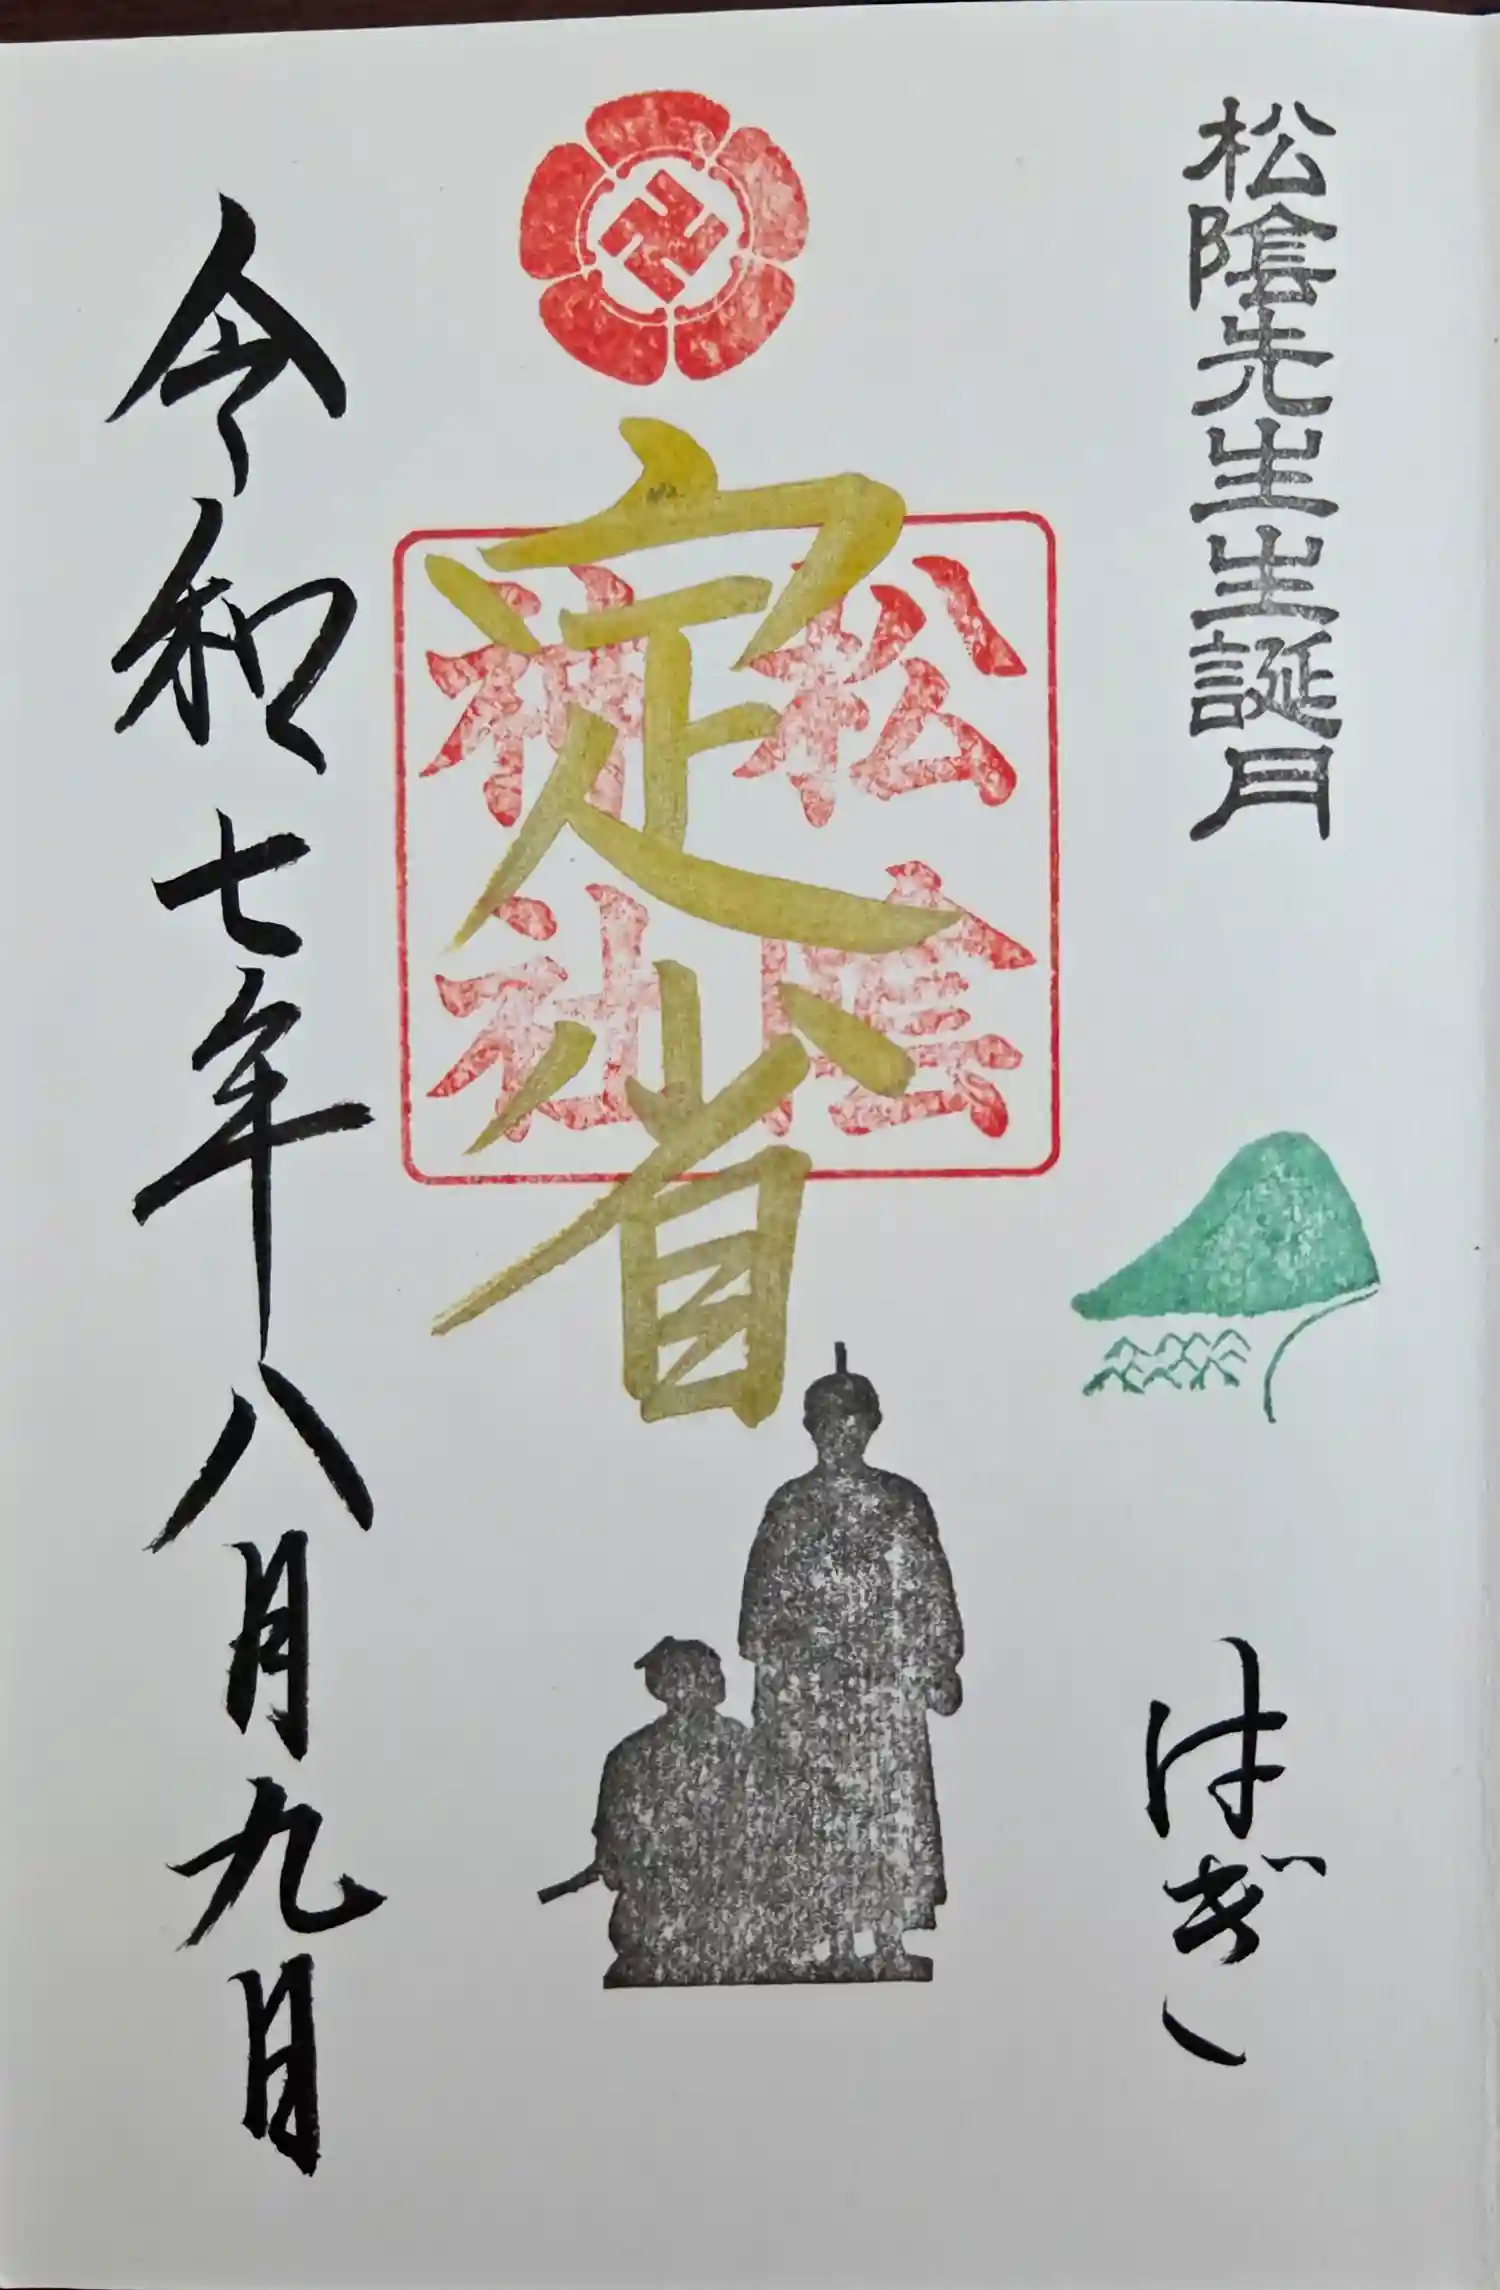 松陰先生生誕月
はぎ
定省
松陰
神社
令和七年八月九日